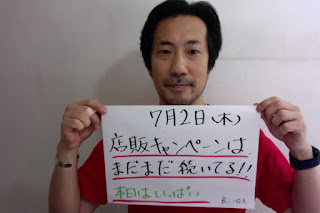 7月2日(木)
店販キャンペーンは
まだまだ続いてる!!
本日はいっぱい